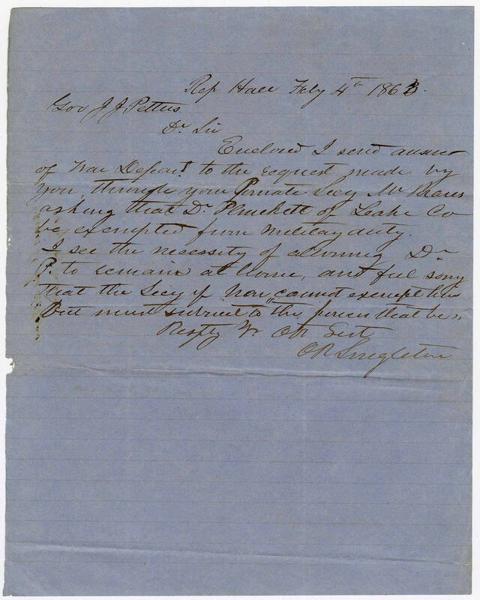 Rep Hall Feby 4th 1863.
Gov J. J. Pettus
Dr Sir
Enclosed I send answer
of War Depart to the request made by
you through your Private Secy Mr
asking that Dr. Plunkett of Leake Co
be exempted from military duty.
I see the necessity of allowing Dr
P. to remain at home, and feel sorry
that the Secy of War cannot exempt him
But must submit to "the powers that be".
Resfy Yr Obt Svt
O R Singleton